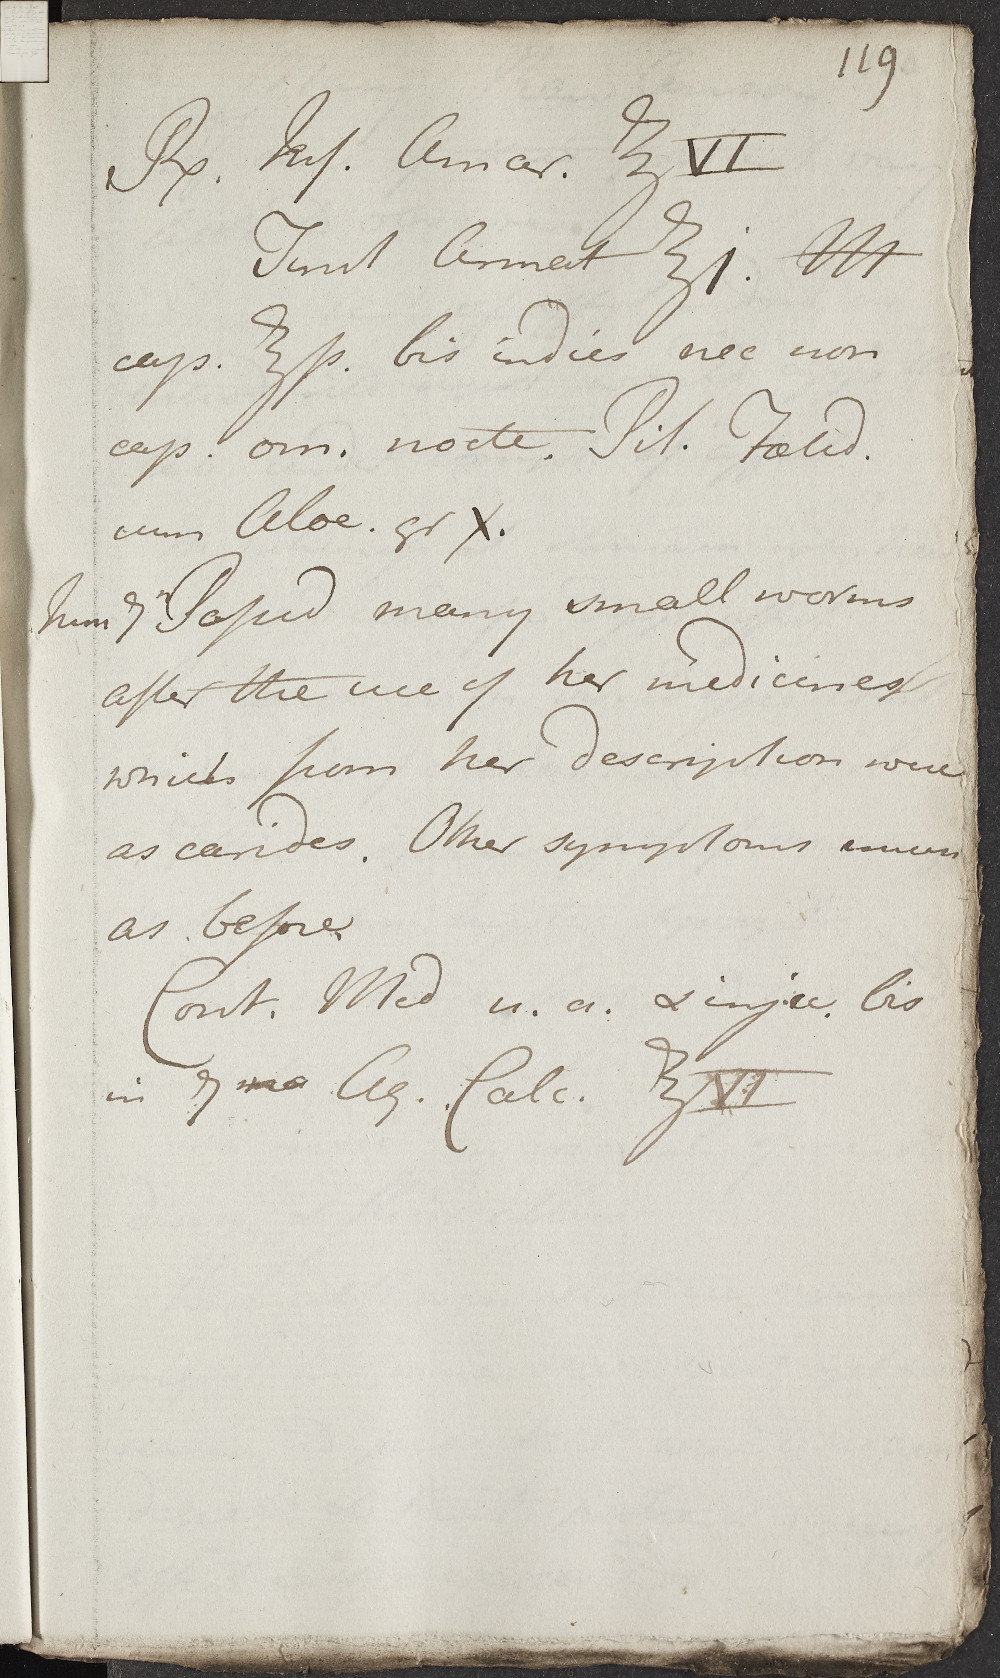 119
Rx. Inf. Amar. ℥VI
Tinct Aromat ℥j. M
cap. ℥ß. bis indies nec non
cap. om. nocte. Pil. Fœtid.
cum Aloe. gr X.
7 Passed many small worms
after the use of her medicines
which from her description were
ascarides. Other symptoms much
as before
Cont. Med u. a. & injic. bis
in 7ma Aq. Calc. ℥VI